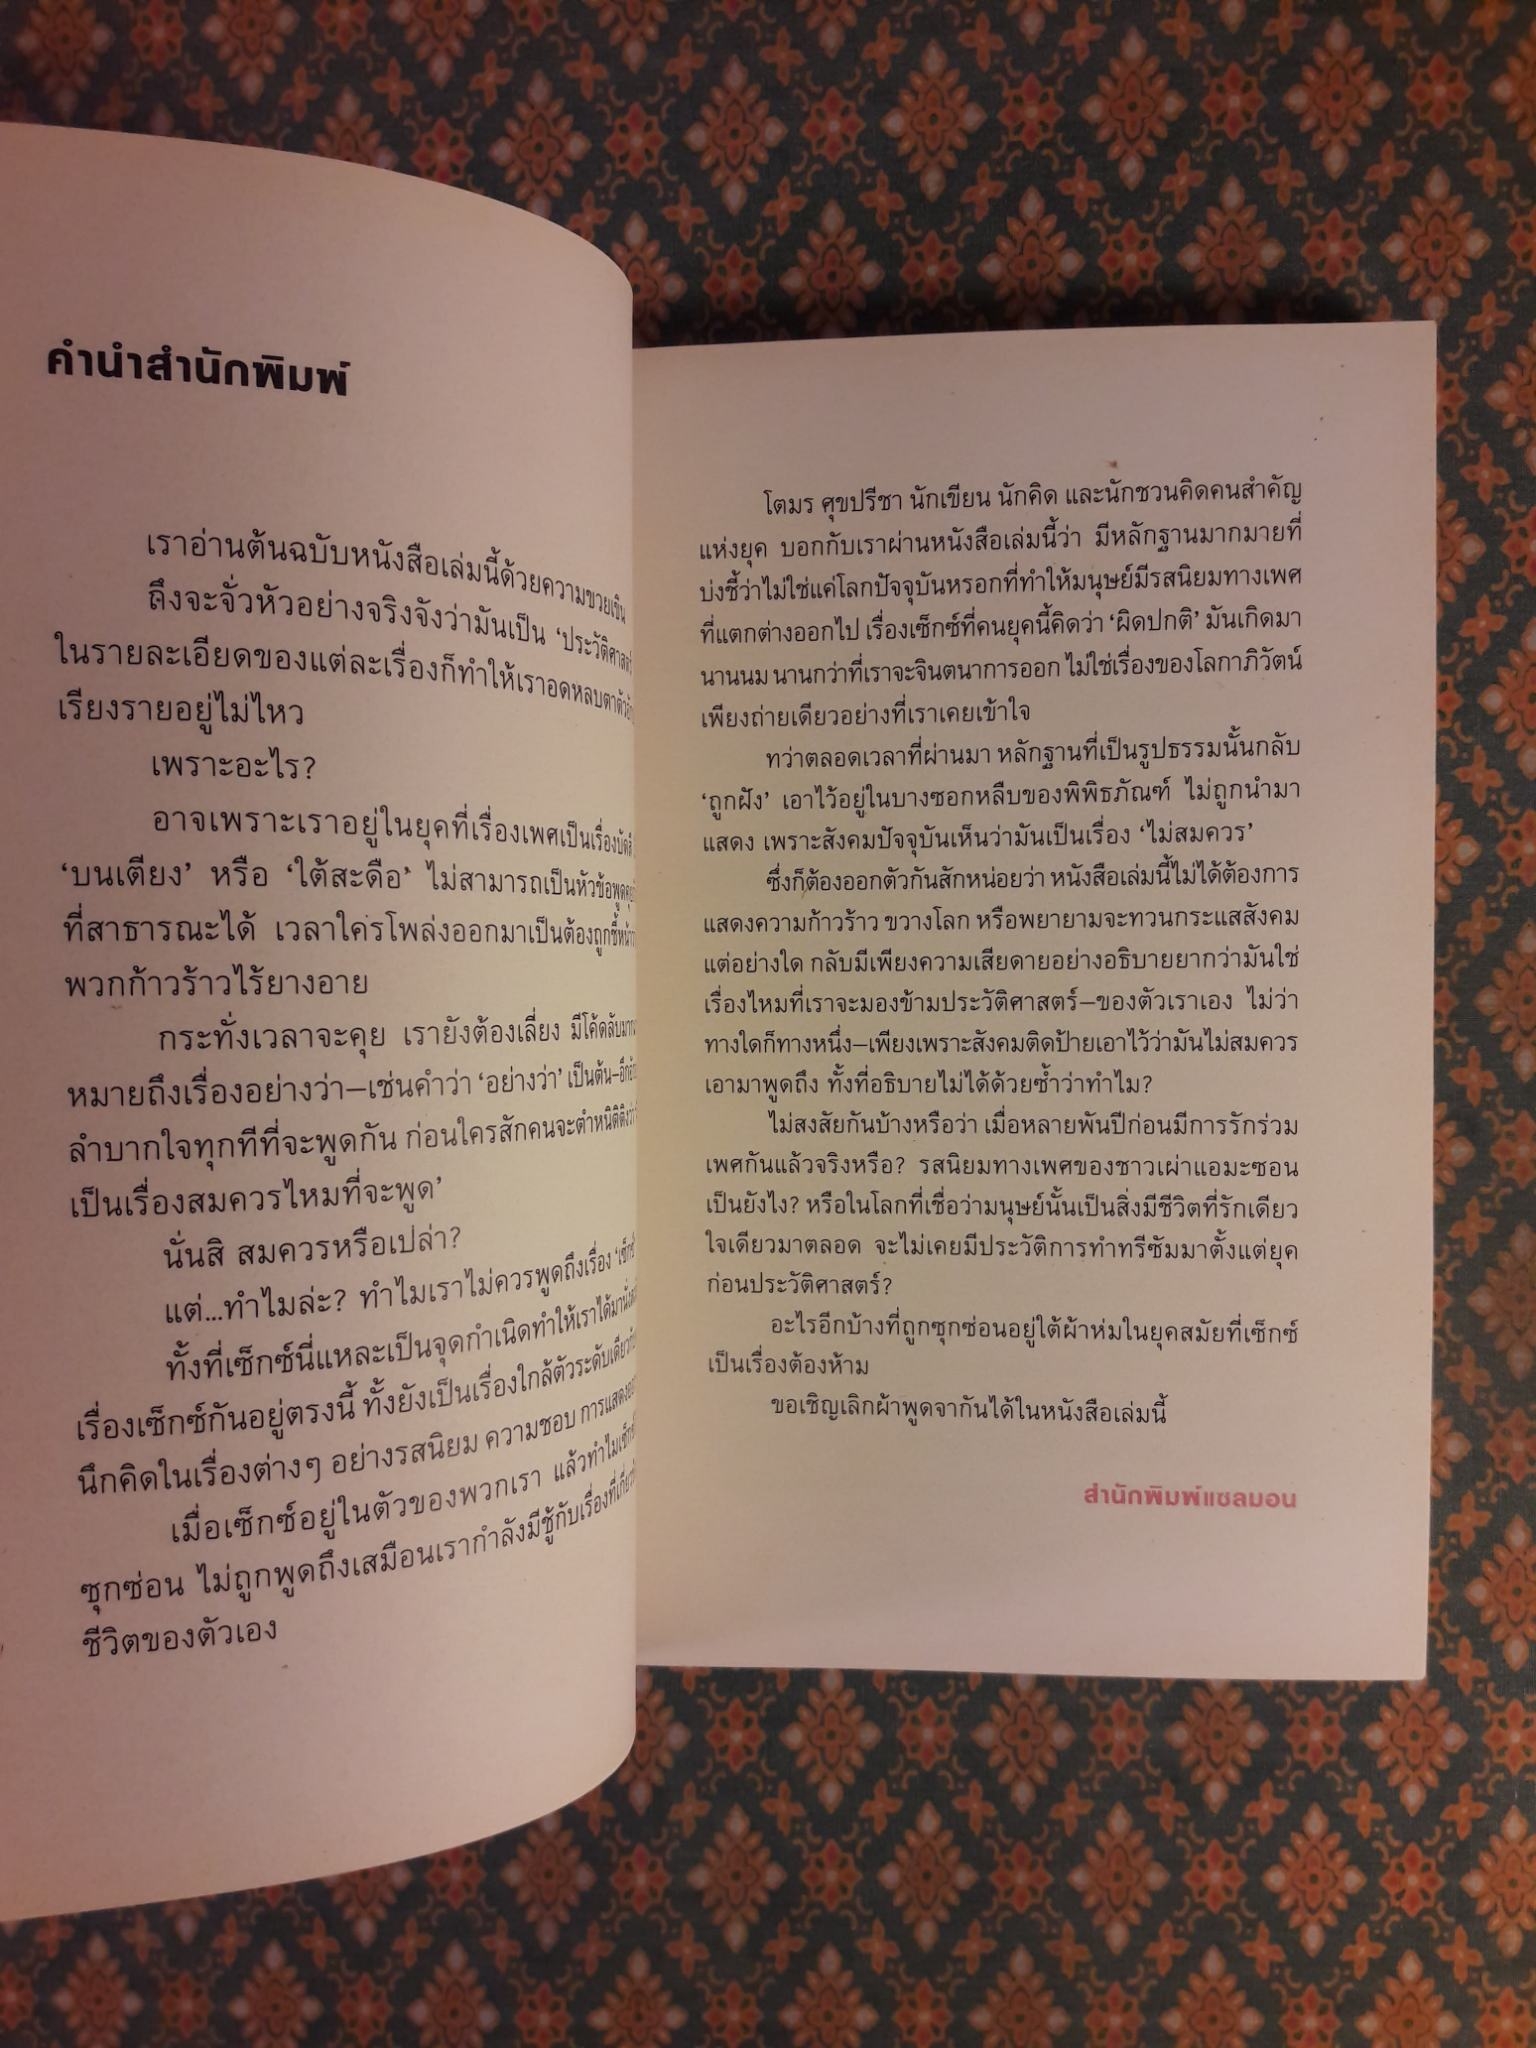 คำนำสำนักพิมพ์
เราอ่านต้นฉบับหนังสือเล่มนี้ด้วยความขวยเขิน
ถึงจะจั่วหัวอย่างจริงจังว่ามันเป็น ‘ประวัติศาสตร์
ในรายละเอียดของแต่ละเรื่องก็ทำให้เราอดหลบตาตัวอักษร
เรียงรายอยู่ไม่ไหว
เพราะอะไร?
อาจเพราะเราอยู่ในยุคที่เรื่องเพศเป็นเรื่องบัดสี
‘บนเตียง’ หรือ ‘ใต้สะดือ’ ไม่สามารถเป็นหัวข้อพูดคุย
ที่สาธารณะได้ เวลาใครโพล่งออกมาเป็นต้องถูกชี้หน้า
พวกก้าวร้าวไร้ยางอาย
กระทั่งเวลาจะคุย เรายังต้องเลี่ยง มีโค้ดลับมาก
หมายถึงเรื่องอย่างว่า—เช่นคำว่า ‘อย่างว่า’ เป็นต้น—
ลำบากใจทุกทีที่จะพูดกัน ก่อนใครสักคนจะตำหนิติติงว่า
เป็นเรื่องสมควรไหมที่จะพูด’
นั่นสิ สมควรหรือเปล่า?
แต่...ทำไมล่ะ? ทำไมเราไม่ควรพูดถึงเรื่อง ‘เซ็กซ์’
ทั้งที่เซ็กซ์นี่แหละเป็นจุดกำเนิดทำให้เราได้มานั่ง
เรื่องเซ็กซ์กันอยู่ตรงนี้ ทั้งยังเป็นเรื่องใกล้ตัวระดับเดียวกับ
นึกคิดในเรื่องต่างๆ อย่างรสนิยม ความชอบ การแสดงออก
เมื่อเซ็กซ์อยู่ในตัวของพวกเรา แล้วทำไมเซ็กซ์
ซุกซ่อน ไม่ถูกพูดถึงเสมือนเรากำลังมีชู้กับเรื่องที่เกี่ยวกับ
ชีวิตของตัวเอง
โตมร ศุขปรีชา นักเขียน นักคิด และนักชวนคิดคนสำคัญ
แห่งยุค บอกกับเราผ่านหนังสือเล่มนี้ว่า มีหลักฐานมากมายที่
บ่งชี้ว่าไม่ใช่แค่โลกปัจจุบันหรอกที่ทำให้มนุษย์มีรสนิยมทางเพศ
ที่แตกต่างออกไป เรื่องเซ็กซ์ที่คนยุคนี้คิดว่า ‘ผิดปกติ’ มันเกิดมา
นานนม นานกว่าที่เราจะจินตนาการออก ไม่ใช่เรื่องของโลกาภิวัตน์
เพียงถ่ายเดียวอย่างที่เราเคยเข้าใจ
ทว่าตลอดเวลาที่ผ่านมา หลักฐานที่เป็นรูปธรรมนั้นกลับ
‘ถูกฝัง’ เอาไว้อยู่ในบางซอกหลืบของพิพิธภัณฑ์ ไม่ถูกนำมา
แสดง เพราะสังคมปัจจุบันเห็นว่ามันเป็นเรื่อง ‘ไม่สมควร’
ซึ่งก็ต้องออกตัวกันสักหน่อยว่า หนังสือเล่มนี้ไม่ได้ต้องการ
แสดงความก้าวร้าว ขวางโลก หรือพยายามจะทวนกระแสสังคม
แต่อย่างใด กลับมีเพียงความเสียดายอย่างอธิบายยากว่ามันใช่
เรื่องไหมที่เราจะมองข้ามประวัติศาสตร์—ของตัวเราเอง ไม่ว่า
ทางใดก็ทางหนึ่ง—เพียงเพราะสังคมติดป้ายเอาไว้ว่ามันไม่สมควร
เอามาพูดถึง ทั้งที่อธิบายไม่ได้ด้วยซ้ำว่าทำไม?
ไม่สงสัยกันบ้างหรือว่า เมื่อหลายพันปีก่อนมีการรักร่วม
เพศกันแล้วจริงหรือ? รสนิยมทางเพศของชาวเผ่าแอมะซอน
เป็นยังไง? หรือในโลกที่เชื่อว่ามนุษย์นั้นเป็นสิ่งมีชีวิตที่รักเดียว
ใจเดียวมาตลอด จะไม่เคยมีประวัติการทำทรีซัมมาตั้งแต่ยุค
ก่อนประวัติศาสตร์?
อะไรอีกบ้างที่ถูกซุกซ่อนอยู่ใต้ผ้าห่มในยุคสมัยที่เซ็กซ์
เป็นเรื่องต้องห้าม
ขอเชิญเลิกผ้าพูดจากันได้ในหนังสือเล่มนี้
สำนักพิมพ์แซลมอน